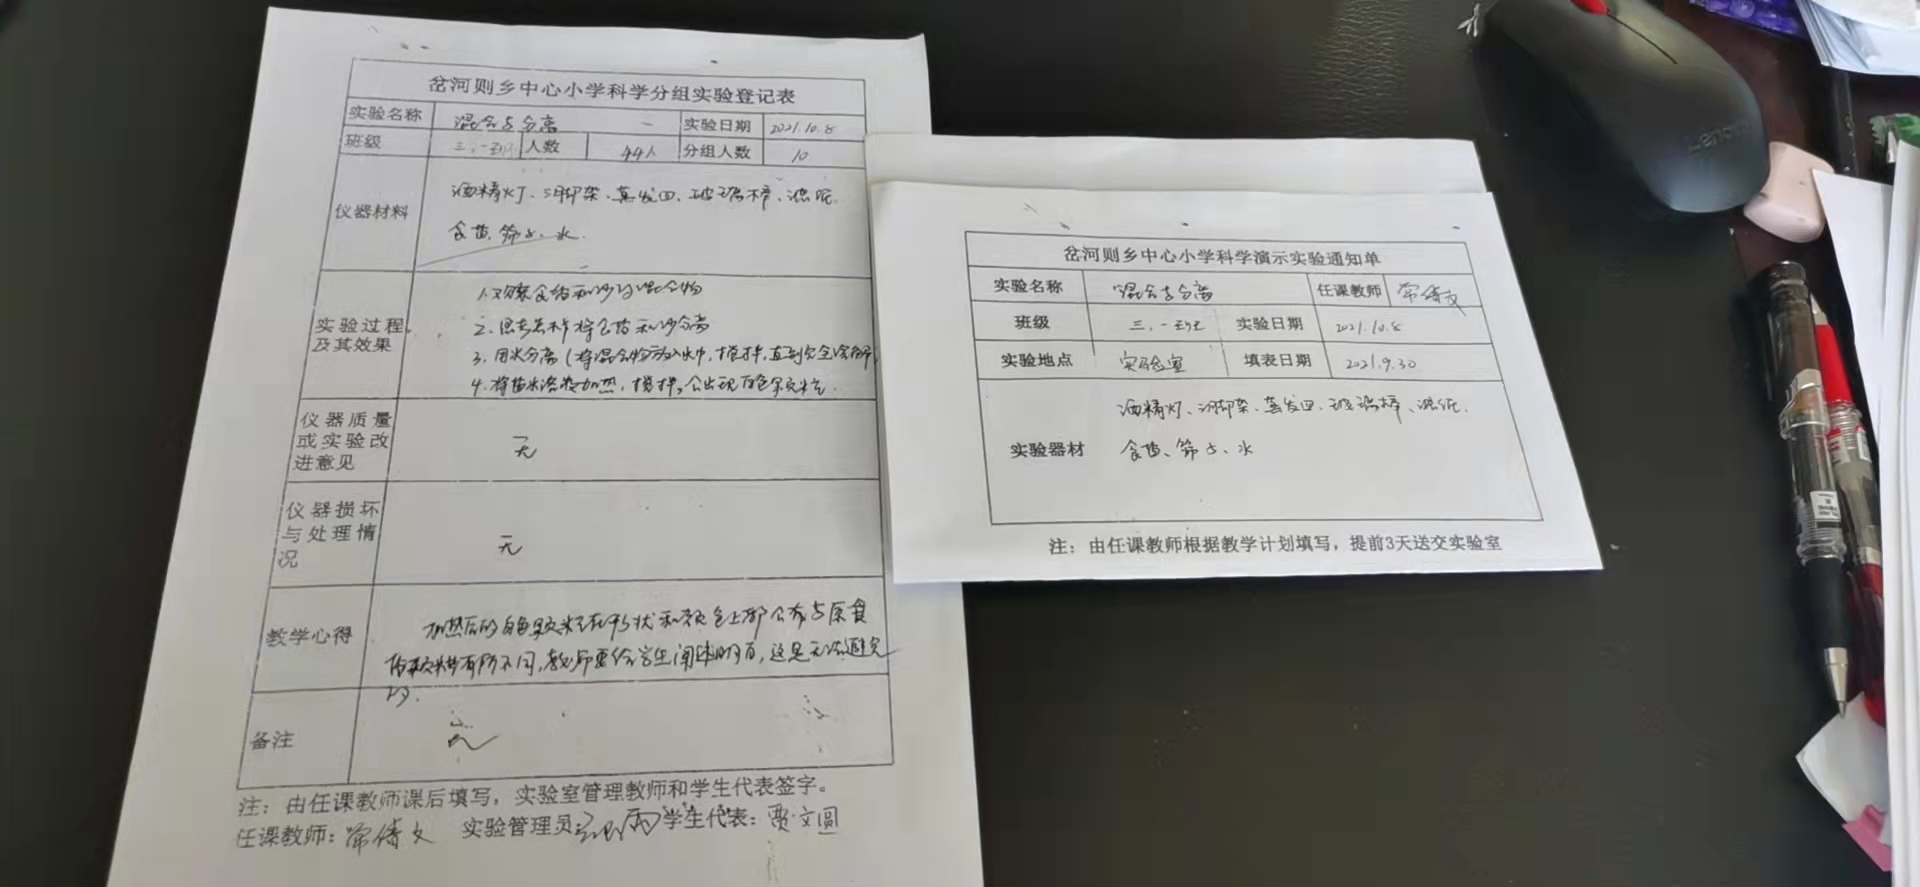 岔河则乡中心小学科学分组实验登记表
实验名称 混合与分离 实验日期 2021.10.8
班级 三.一班 人数 44人 分组人数 10
仪器材料 酒精灯、三脚架、蒸发皿、玻璃棒、滤纸.
食盐、筛子、水.
实验过程及其效果 1.观察食盐和沙的混合物
2.思考怎样将食盐和沙分离
3.用水分离(将混合物放入水中,搅拌,直到完全溶解)
4.将盐水溶液加热,搅拌,会出现白色颗粒.
仪器质量或实验改进意见 无
仪器损坏与处理情况 无
教学心得 加热后的白色颗粒在形状和颜色上都会有与原食
盐颗粒有所不同,教师要给学生阐述明白,这是无法避免
的.
备注 无
注:由任课教师课后填写,实验室管理教师和学生代表签字。
任课教师:常倩文 实验管理员: 学生代表:贾文圆
岔河则乡中心小学科学演示实验通知单
实验名称 混合与分离 任课教师 常倩文
班级 三.一班 实验日期 2021.10.8
实验地点 实验室 填表日期 2021.9.30
实验器材 酒精灯、三脚架、蒸发皿、玻璃棒、滤纸.
食盐、筛子、水
注:由任课教师根据教学计划填写,提前3天送交实验室
Lenovo